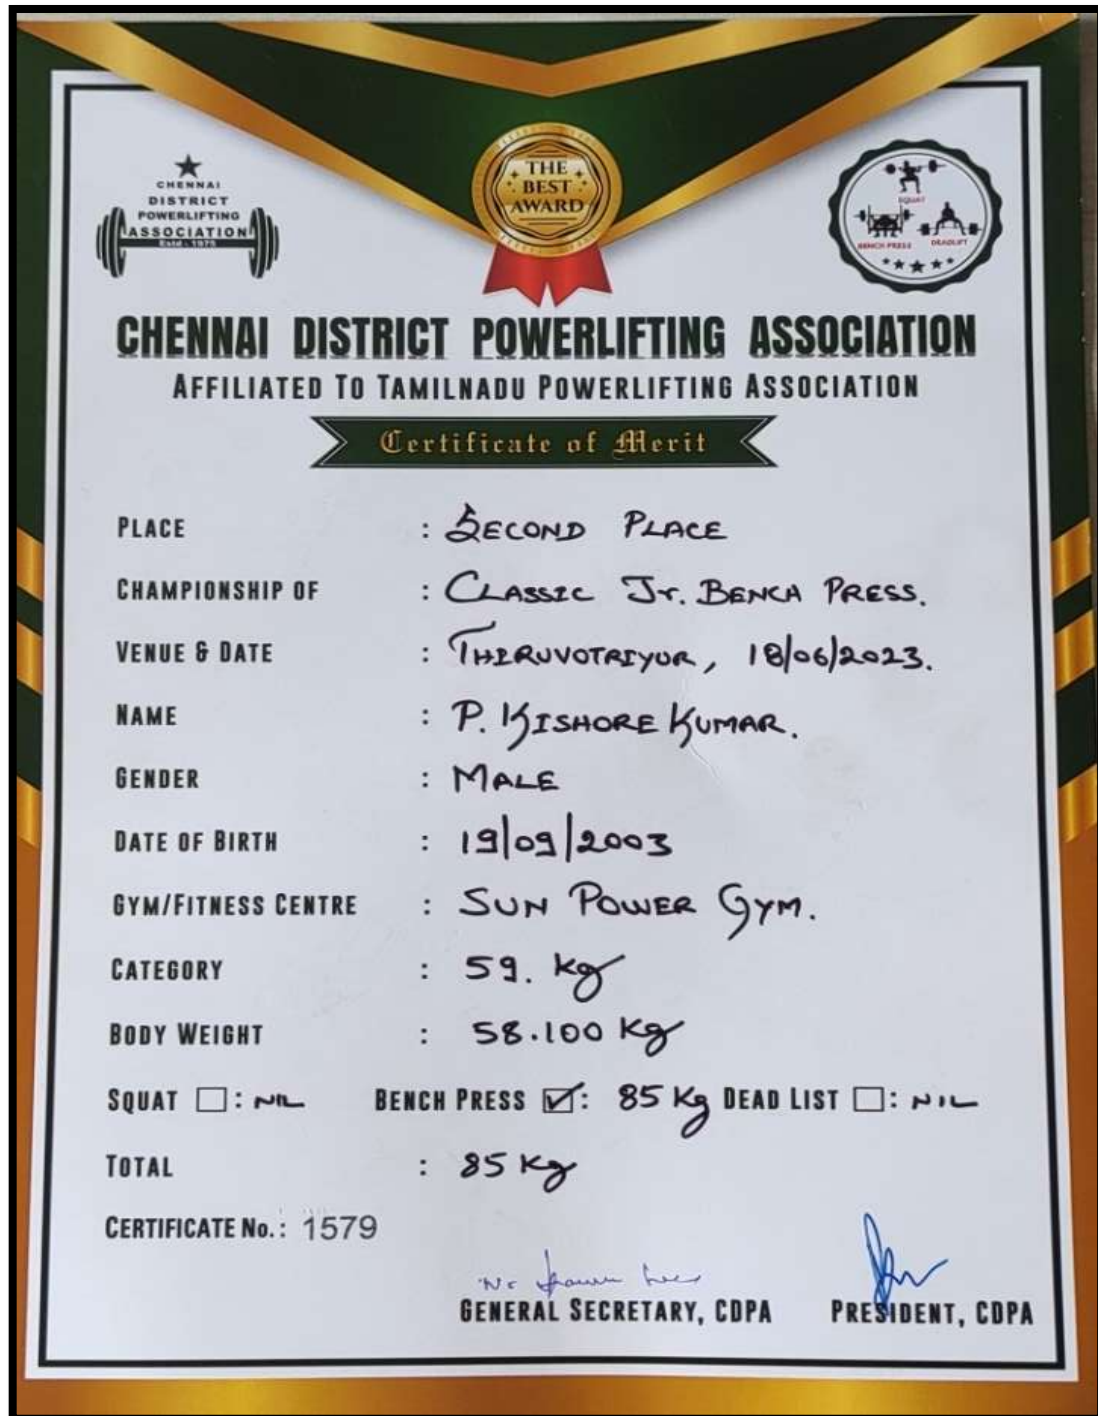 CHENNAI
DISTRICT
POWERLIFTING
ASSOCIATION
Estd - 1975
THE
BEST
AWARD
SQUAT
BENCH PRESS
DEADLIFT
CHENNAI DISTRICT POWERLIFTING ASSOCIATION
AFFILIATED TO TAMILNADU POWERLIFTING ASSOCIATION
Certificate of Merit
PLACE : SECOND PLACE
CHAMPIONSHIP OF : CLASSIC Jr. BENCH PRESS.
VENUE & DATE : THIRUVOTRIYUR, 18/06/2023.
NAME : P. KISHORE KUMAR.
GENDER : MALE
DATE OF BIRTH : 19/09/2003
GYM/FITNESS CENTRE : SUN POWER GYM.
CATEGORY : 59. kg
BODY WEIGHT : 58.100 Kg
SQUAT : NIL BENCH PRESS : 85 Kg DEAD LIST : NIL
TOTAL : 85 Kg
CERTIFICATE No. : 1579
GENERAL SECRETARY, CDPA PRESIDENT, CDPA